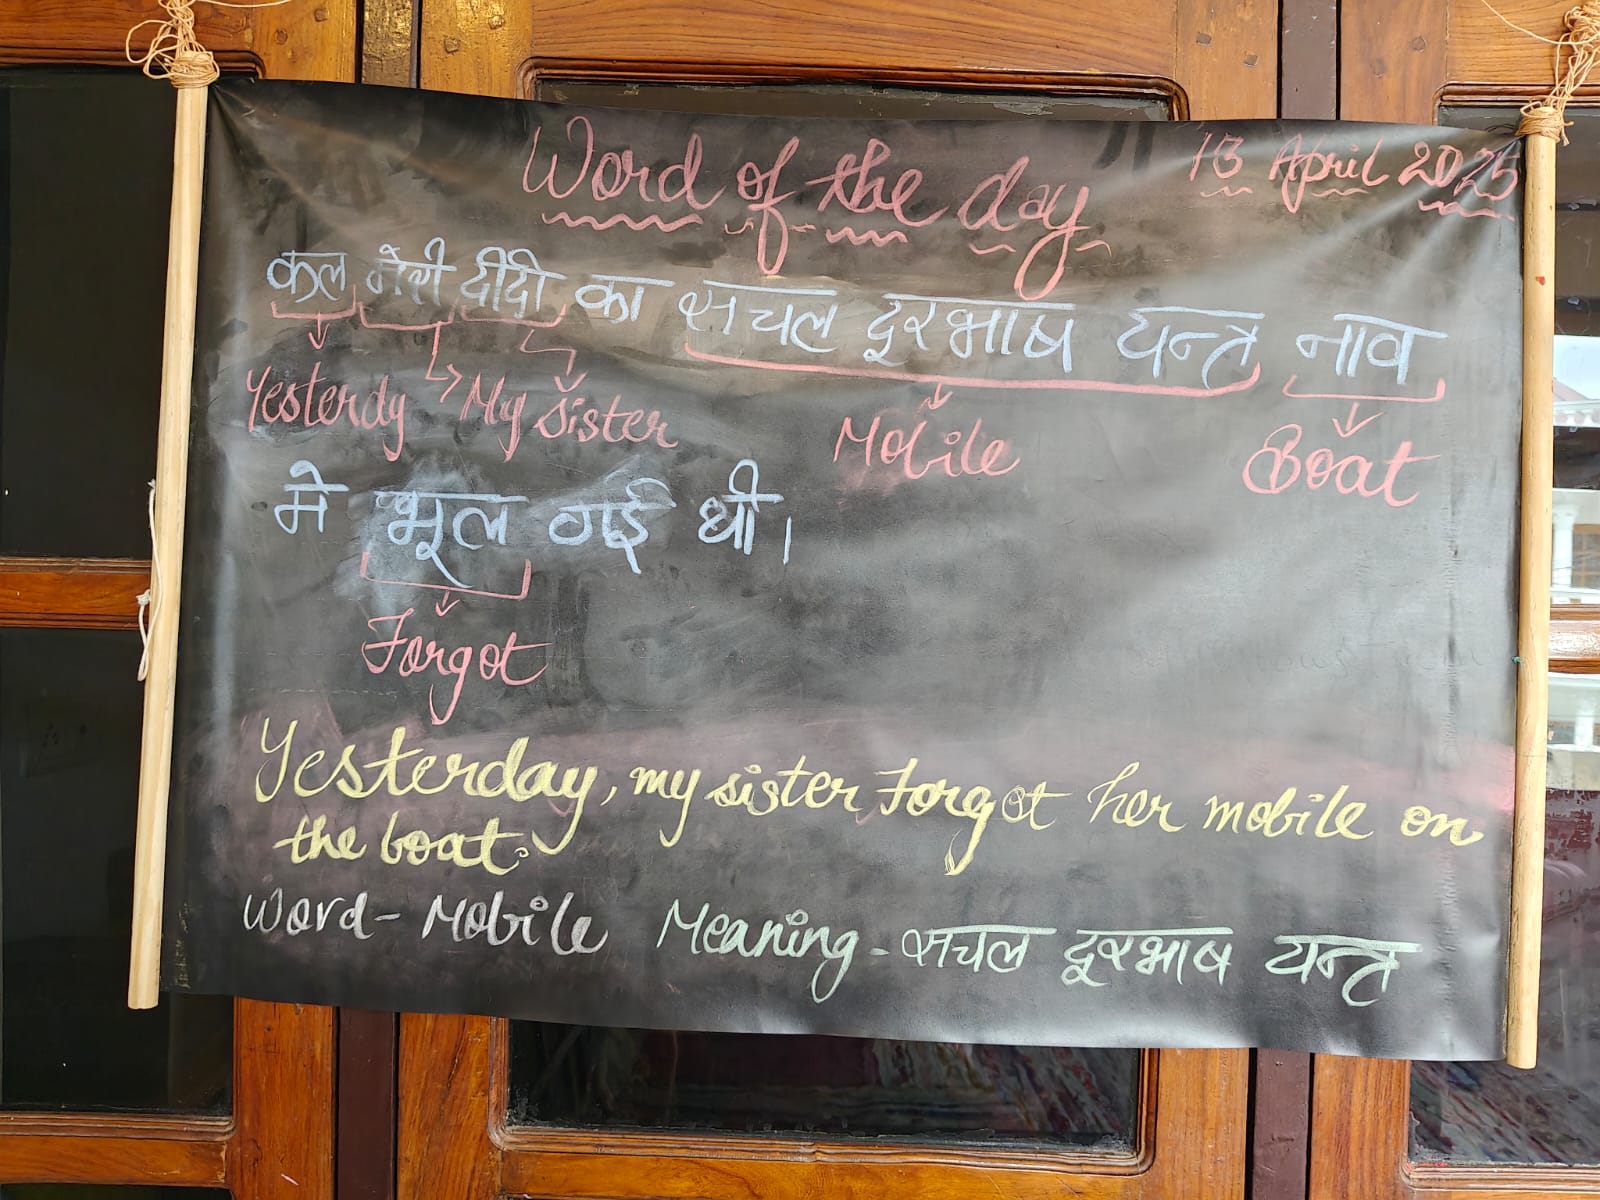 Word of the day
13 April 2025
कल मेरी दीदी का सचल दूरभाष यन्त्र नाव
Yesterdy My sister Mobile Boat
मे भूल गई थी।
Forgot
Yesterday, my sister Forgot her mobile on
the boat.
Word - Mobile Meaning - सचल दूरभाष यन्त्र